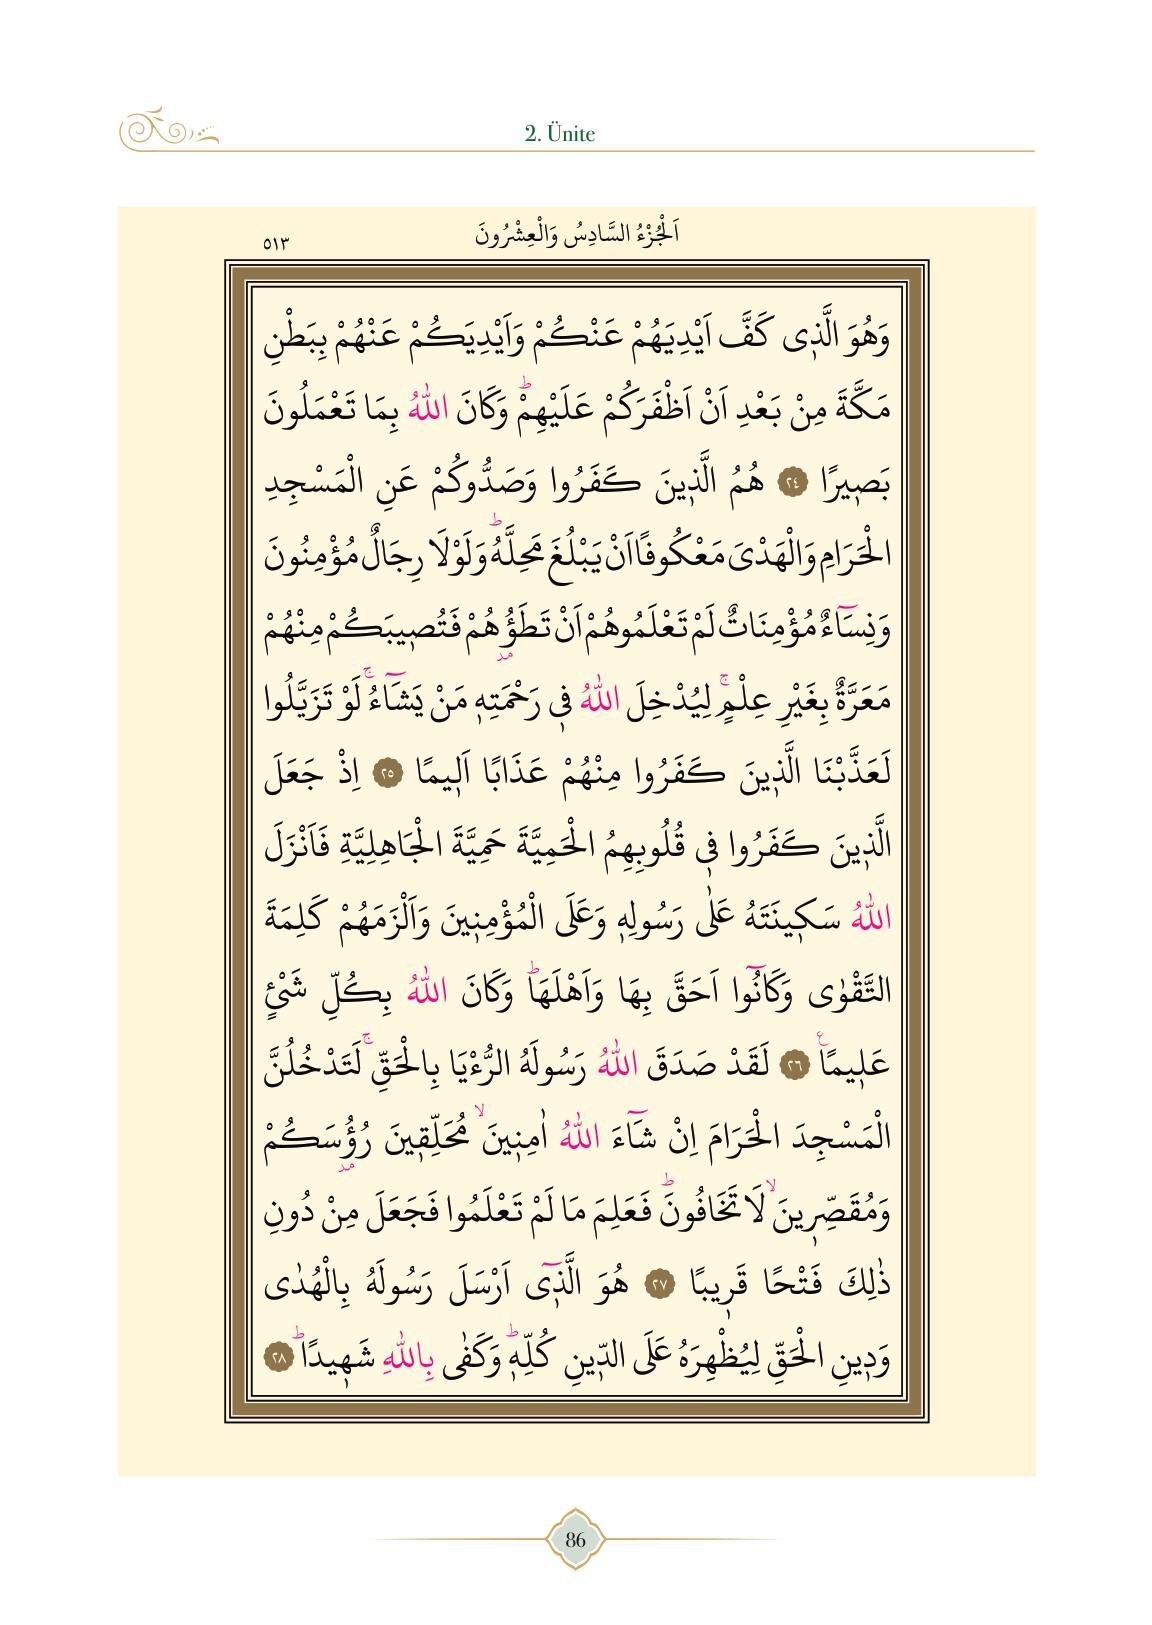 2. Ünite
اَلْجُزْءُ السَّادِسُ وَالْعِشْرُونَ
٥١٣
وَهُوَ الَّذ۪ى كَفَّ اَيْدِيَهُمْ عَنْكُمْ وَاَيْدِيَكُمْ عَنْهُمْ بِبَطْنِ
مَكَّةَ مِنْ بَعْدِ اَنْ اَظْفَرَكُمْ عَلَيْهِمْۜ وَكَانَ اللّٰهُ بِمَا تَعْمَلُونَ
بَص۪يرًا ﴿٢٤﴾ هُمُ الَّذ۪ينَ كَفَرُوا وَصَدُّوكُمْ عَنِ الْمَسْجِدِ
الْحَرَامِ وَالْهَدْىَ مَعْكُوفًا اَنْ يَبْلُغَ مَحِلَّهُۜ وَلَوْلَا رِجَالٌ مُؤْمِنُونَ
وَنِسَٓاءٌ مُؤْمِنَاتٌ لَمْ تَعْلَمُوهُمْ اَنْ تَطَؤُ۫هُمْ فَتُص۪يبَكُمْ مِنْهُمْ
مَعَرَّةٌ بِغَيْرِ عِلْمٍۚ لِيُدْخِلَ اللّٰهُ ف۪ى رَحْمَتِه۪ مَنْ يَشَٓاءُۚ لَوْ تَزَيَّلُوا
لَعَذَّبْنَا الَّذ۪ينَ كَفَرُوا مِنْهُمْ عَذَابًا اَل۪يمًا ﴿٢٥﴾ اِذْ جَعَلَ
الَّذ۪ينَ كَفَرُوا ف۪ى قُلُوبِهِمُ الْحَمِيَّةَ حَمِيَّةَ الْجَاهِلِيَّةِ فَاَنْزَلَ
اللّٰهُ سَك۪ينَتَهُ عَلٰى رَسُولِه۪ وَعَلَى الْمُؤْمِن۪ينَ وَاَلْزَمَهُمْ كَلِمَةَ
التَّقْوٰى وَكَانُٓوا اَحَقَّ بِهَا وَاَهْلَهَاۜ وَكَانَ اللّٰهُ بِكُلِّ شَىْءٍ
عَل۪يمًا۟ ﴿٢٦﴾ لَقَدْ صَدَقَ اللّٰهُ رَسُولَهُ الرُّءْيَا بِالْحَقِّۚ لَتَدْخُلُنَّ
الْمَسْجِدَ الْحَرَامَ اِنْ شَٓاءَ اللّٰهُ اٰمِن۪ينَۙ مُحَلِّق۪ينَ رُؤُ۫سَكُمْ
وَمُقَصِّر۪ينَۙ لَا تَخَافُونَۜ فَعَلِمَ مَا لَمْ تَعْلَمُوا فَجَعَلَ مِنْ دُونِ
ذٰلِكَ فَتْحًا قَر۪يبًا ﴿٢٧﴾ هُوَ الَّذ۪ٓى اَرْسَلَ رَسُولَهُ بِالْهُدٰى
وَد۪ينِ الْحَقِّ لِيُظْهِرَهُ عَلَى الدّ۪ينِ كُلِّه۪ۜ وَكَفٰى بِاللّٰهِ شَه۪يدًاۜ ﴿٢٨﴾
86